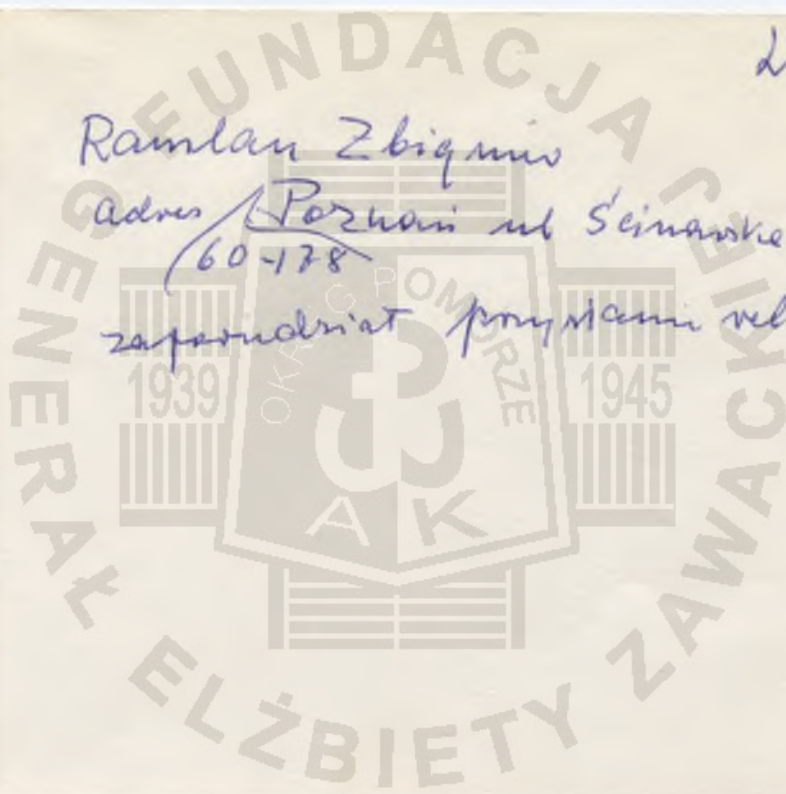 Ramlau Zbigniew
adres Poznań ul Ścinawska
60-178
zapowiedział przysłanie rel
FUNDACJA GENERAŁ ELŻBIETY ZAWACKIEJ
OKRĘG POMORZE
1939 1945
AK